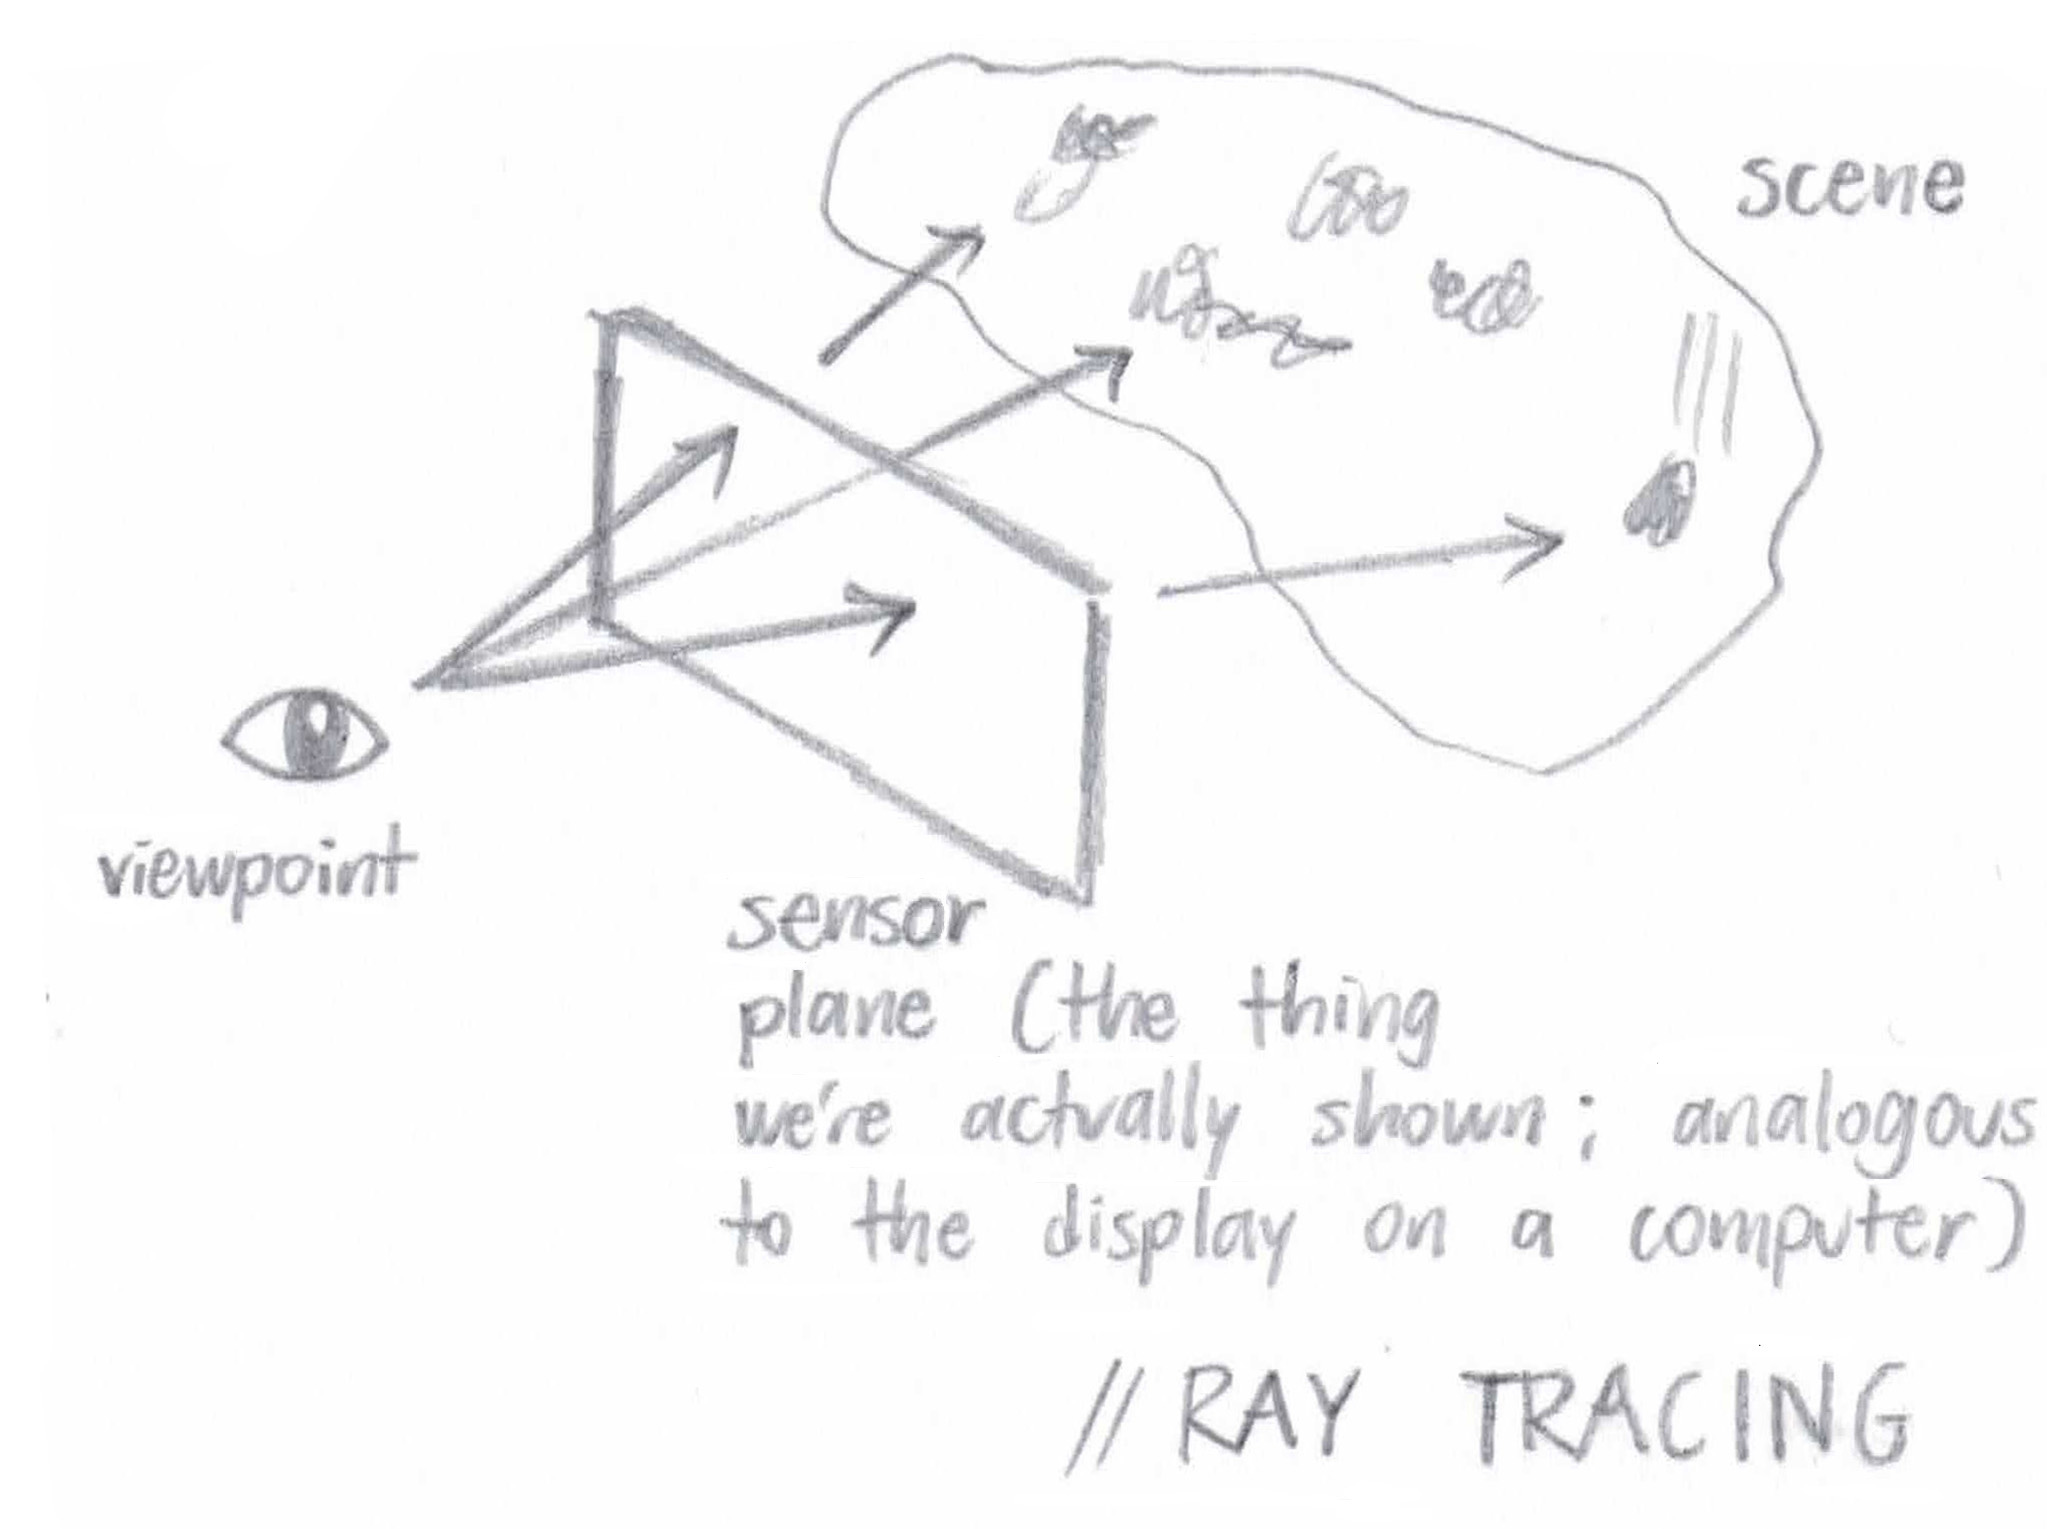 scene
viewpoint
sensor
plane (the thing
we're actually shown; analogous
to the display on a computer)
// RAY TRACING